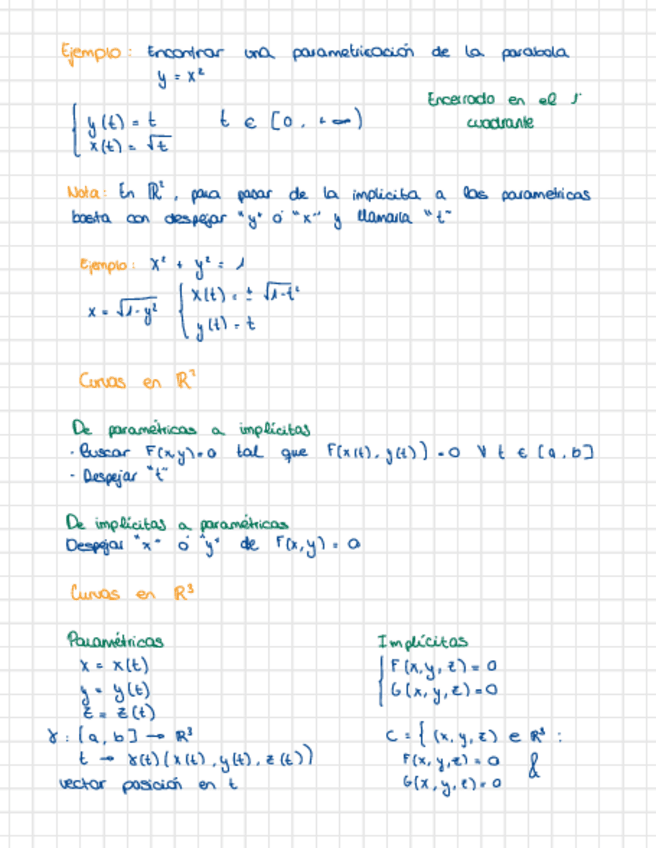 Ejemplo: Encontrar una parametrización de la parabola
y = x²
Encerrado en el 1º
cuadrante
y(t) = t    t ∈ [0, +∞)
x(t) = √t
Nota: En ℝ², para pasar de la implicita a las parametricas
basta con despejar "y" ó "x" y llamarla "t"
Ejemplo: x² + y² = 1
x = √1-y²   { x(t) = ± √1-t²
y(t) = t
Curvas en ℝ²
De paramétricas a implícitas
· Buscar F(x,y)=0 tal que F(x(t), y(t)) = 0 ∀ t ∈ [a,b]
- Despejar "t"
De implícitas a paramétricas
Despejar "x" ó "y" de F(x,y) = 0
Curvas en ℝ³
Paramétricas
x = x(t)
y = y(t)
z = z(t)
γ: [a,b] → ℝ³
t → γ(t)(x(t), y(t), z(t))
vector posición en t
Implícitas
F(x,y,z) = 0
G(x,y,z) = 0
C = { (x,y,z) e ℝ³ :
F(x,y,z) = 0 &
G(x,y,z) = 0